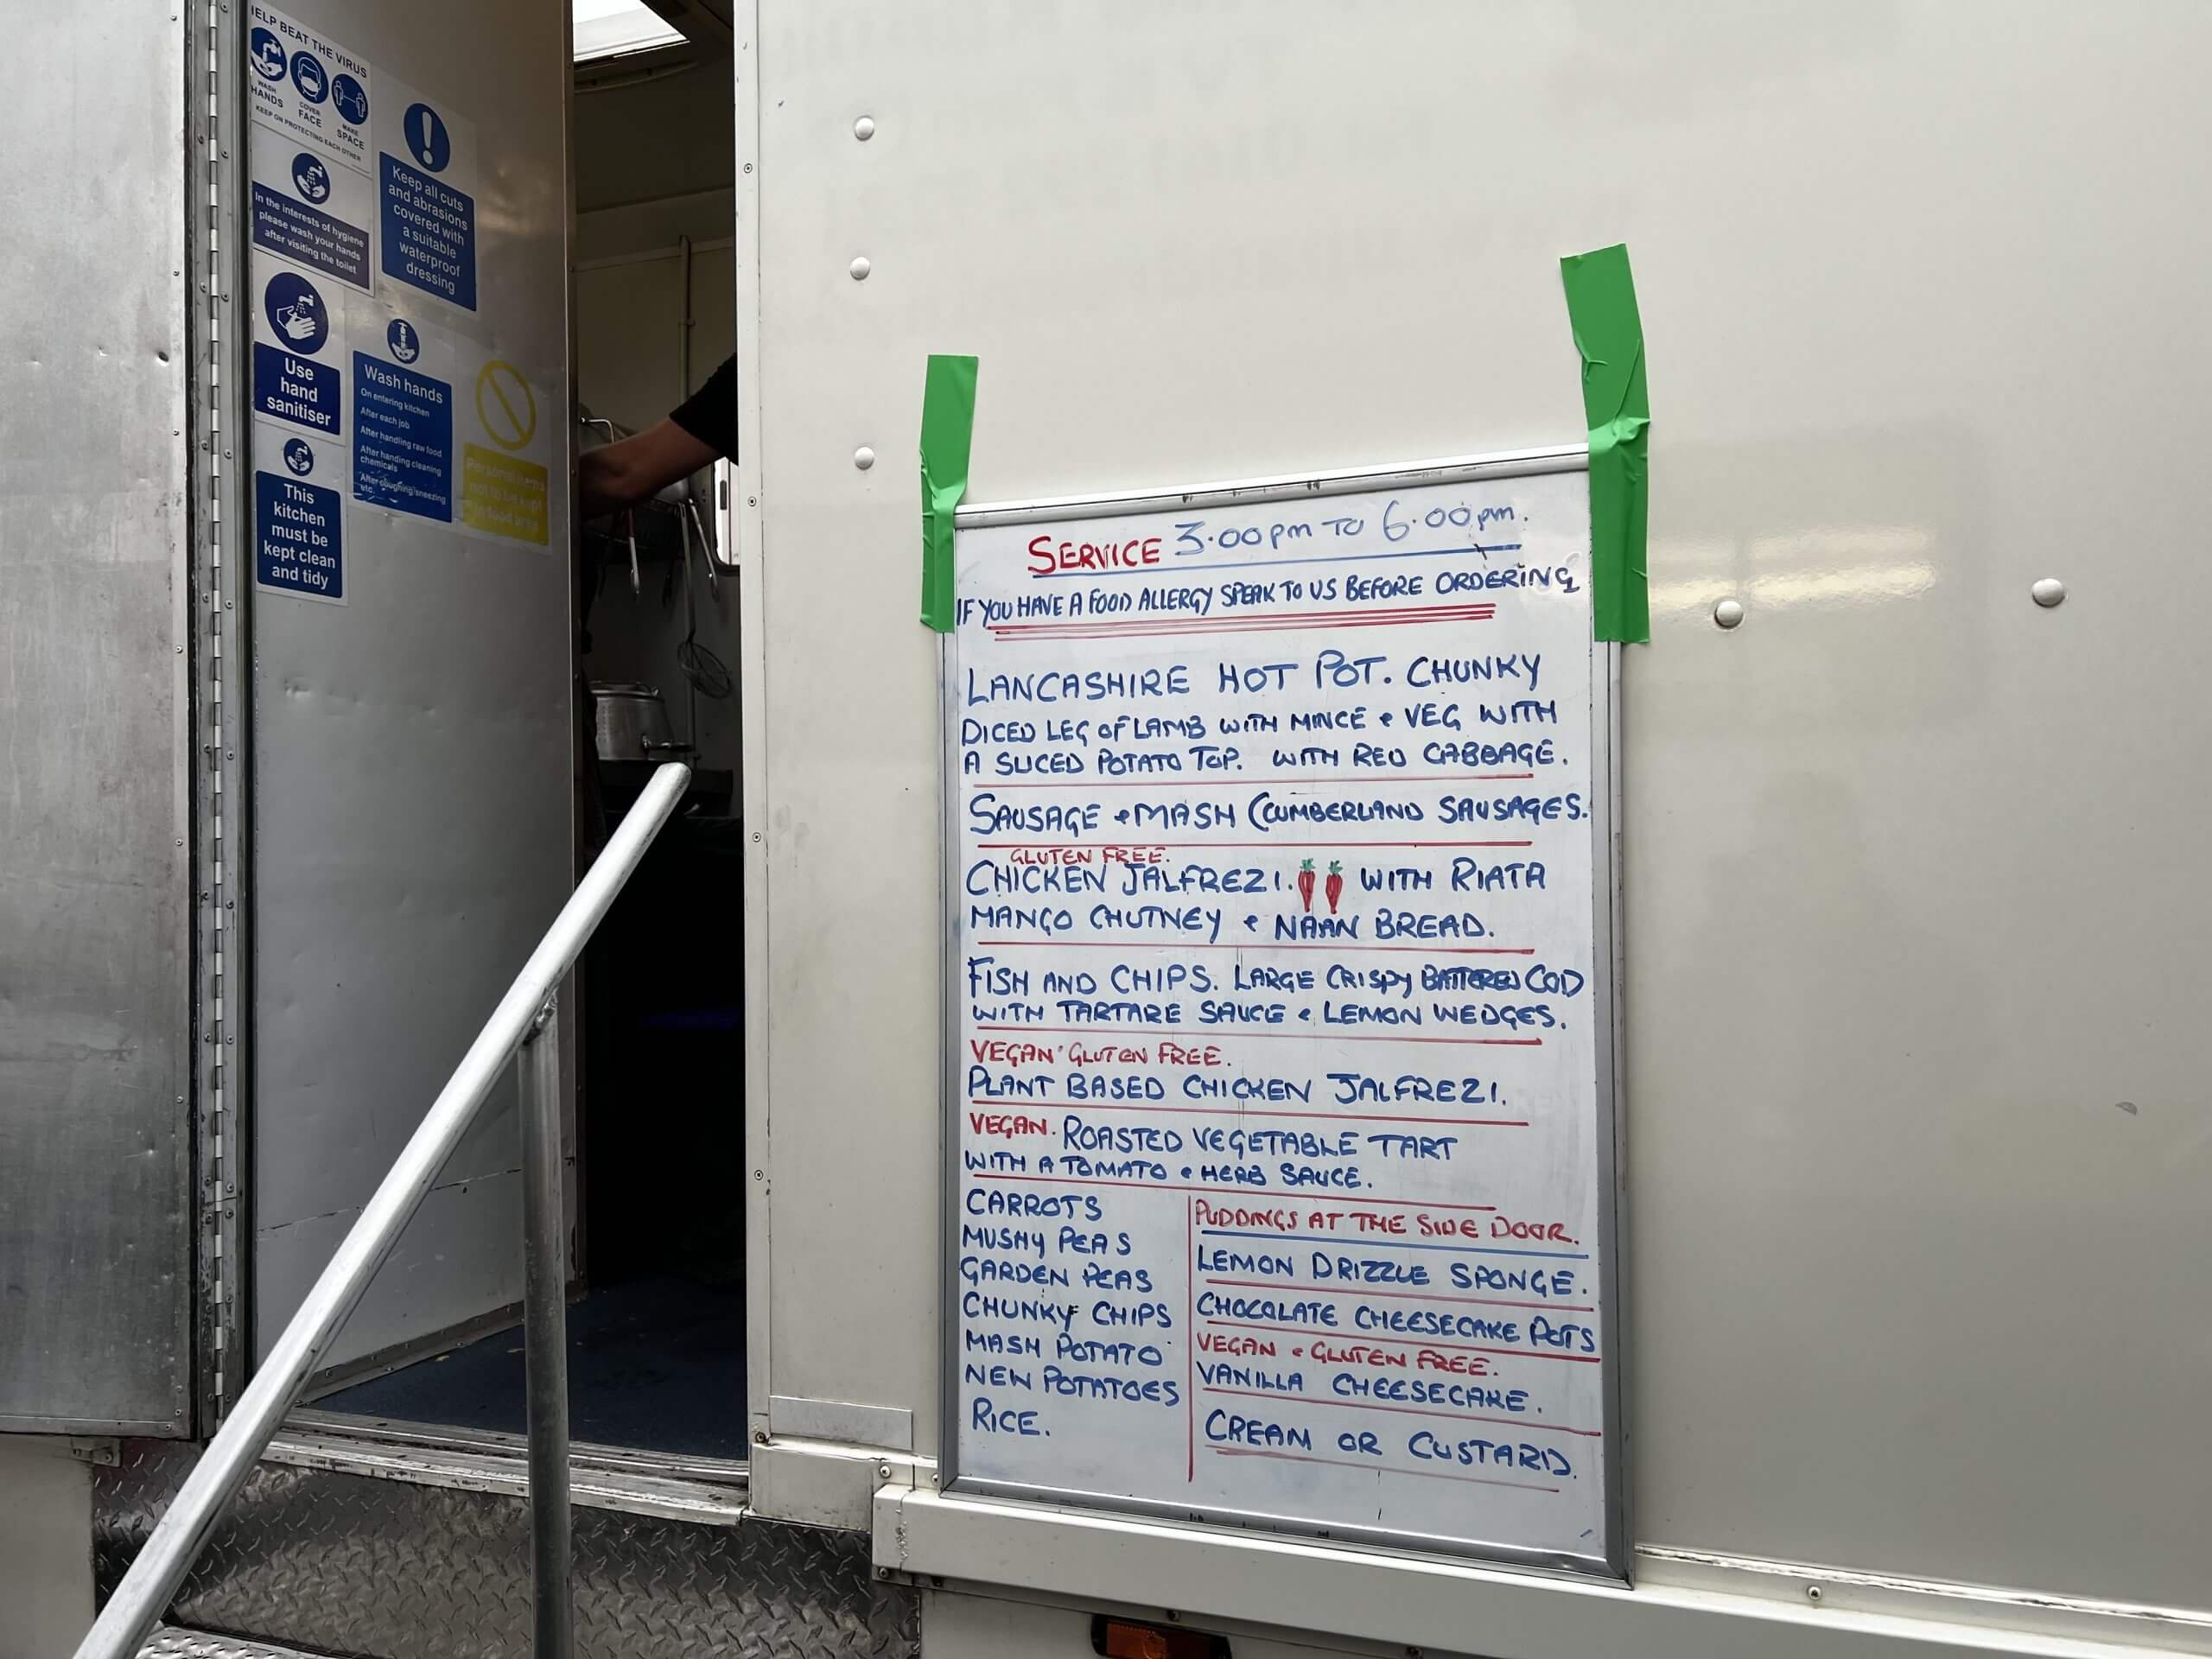 HELP BEAT THE VIRUS
WASH HANDS
COVER FACE
MAKE SPACE
KEEP ON PROTECTING EACH OTHER
In the interests of hygiene
please wash your hands
after visiting the toilet
Keep all cuts
and abrasions
covered with
a suitable
waterproof
dressing
Use
hand
sanitiser
Wash hands
On entering kitchen
After each job
After handling raw food
After handing cleaning
chemicals
After coughing/sneezing
etc.
Personal items
not to be kept
in food area
This
kitchen
must be
kept clean
and tidy
SERVICE 3.00pm TO 6.00pm.
IF YOU HAVE A FOOD ALLERGY SPEAK TO US BEFORE ORDERING
LANCASHIRE HOT POT. CHUNKY
DICED LEG OF LAMB WITH MINCE & VEG WITH
A SLICED POTATO TOP. WITH RED CABBAGE.
SAUSAGE & MASH (CUMBERLAND SAUSAGES.
GLUTEN FREE.
CHICKEN JALFREZI. WITH RIATA
MANGO CHUTNEY & NAAN BREAD.
FISH AND CHIPS. LARGE CRISPY BATTERED COD
WITH TARTARE SAUCE & LEMON WEDGES.
VEGAN GLUTEN FREE.
PLANT BASED CHICKEN JALFREZI.
VEGAN. ROASTED VEGETABLE TART
WITH A TOMATO & HERB SAUCE.
CARROTS
MUSHY PEAS
GARDEN PEAS
CHUNKY CHIPS
MASH POTATO
NEW POTATOES
RICE.
PUDDINGS AT THE SIDE DOOR.
LEMON DRIZZLE SPONGE.
CHOCOLATE CHEESECAKE POTS
VEGAN & GLUTEN FREE.
VANILLA CHEESECAKE.
CREAM OR CUSTARD.